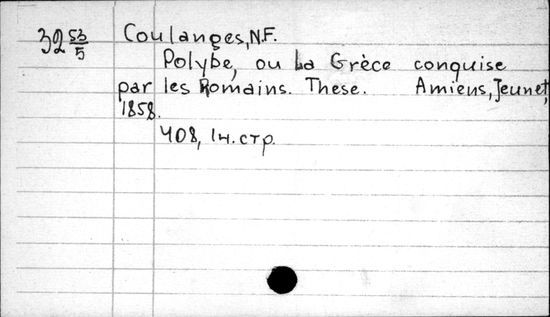 32 53/5 Coulanges, N.F.
Polybe, ou La Grèce conquise
par les Romains. These. Amiens, Jeunet,
1858.
408, 1н.стр.